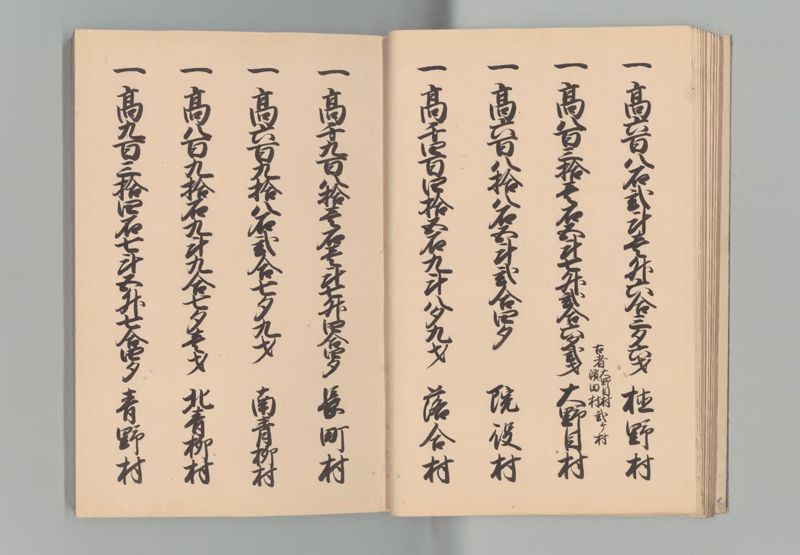 一 高六百八石弐斗壱升六合三夕六才 椹野村
一 高八百三拾壱石五斗七升弐合六夕弐才 大野目村
古者大野目村
濱田村弐ケ村
一 高六百八拾八石五斗弐合四夕 院役村
一 高千四百四拾五石九斗八夕九才 落合村
一 高千九百八拾壱石壱斗七升四合四夕 長町村
一 高六百九拾八石弐合七夕九才 南青柳村
一 高八百九拾石九斗九合七夕壱才 北青柳村
一 高九百三拾四石七斗五升七合四夕 青野村